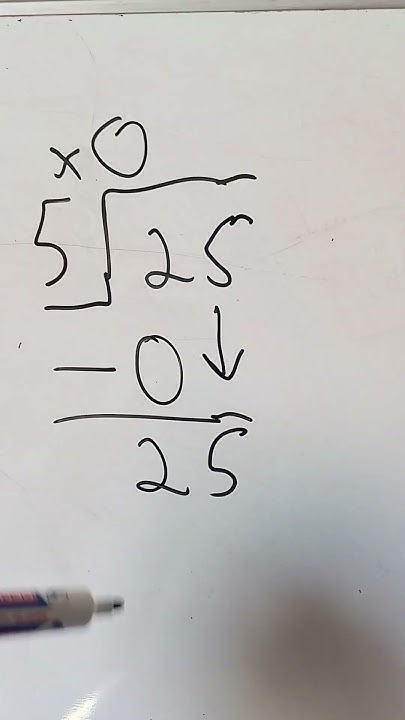 x 0
5 25
- 0 ↓
25